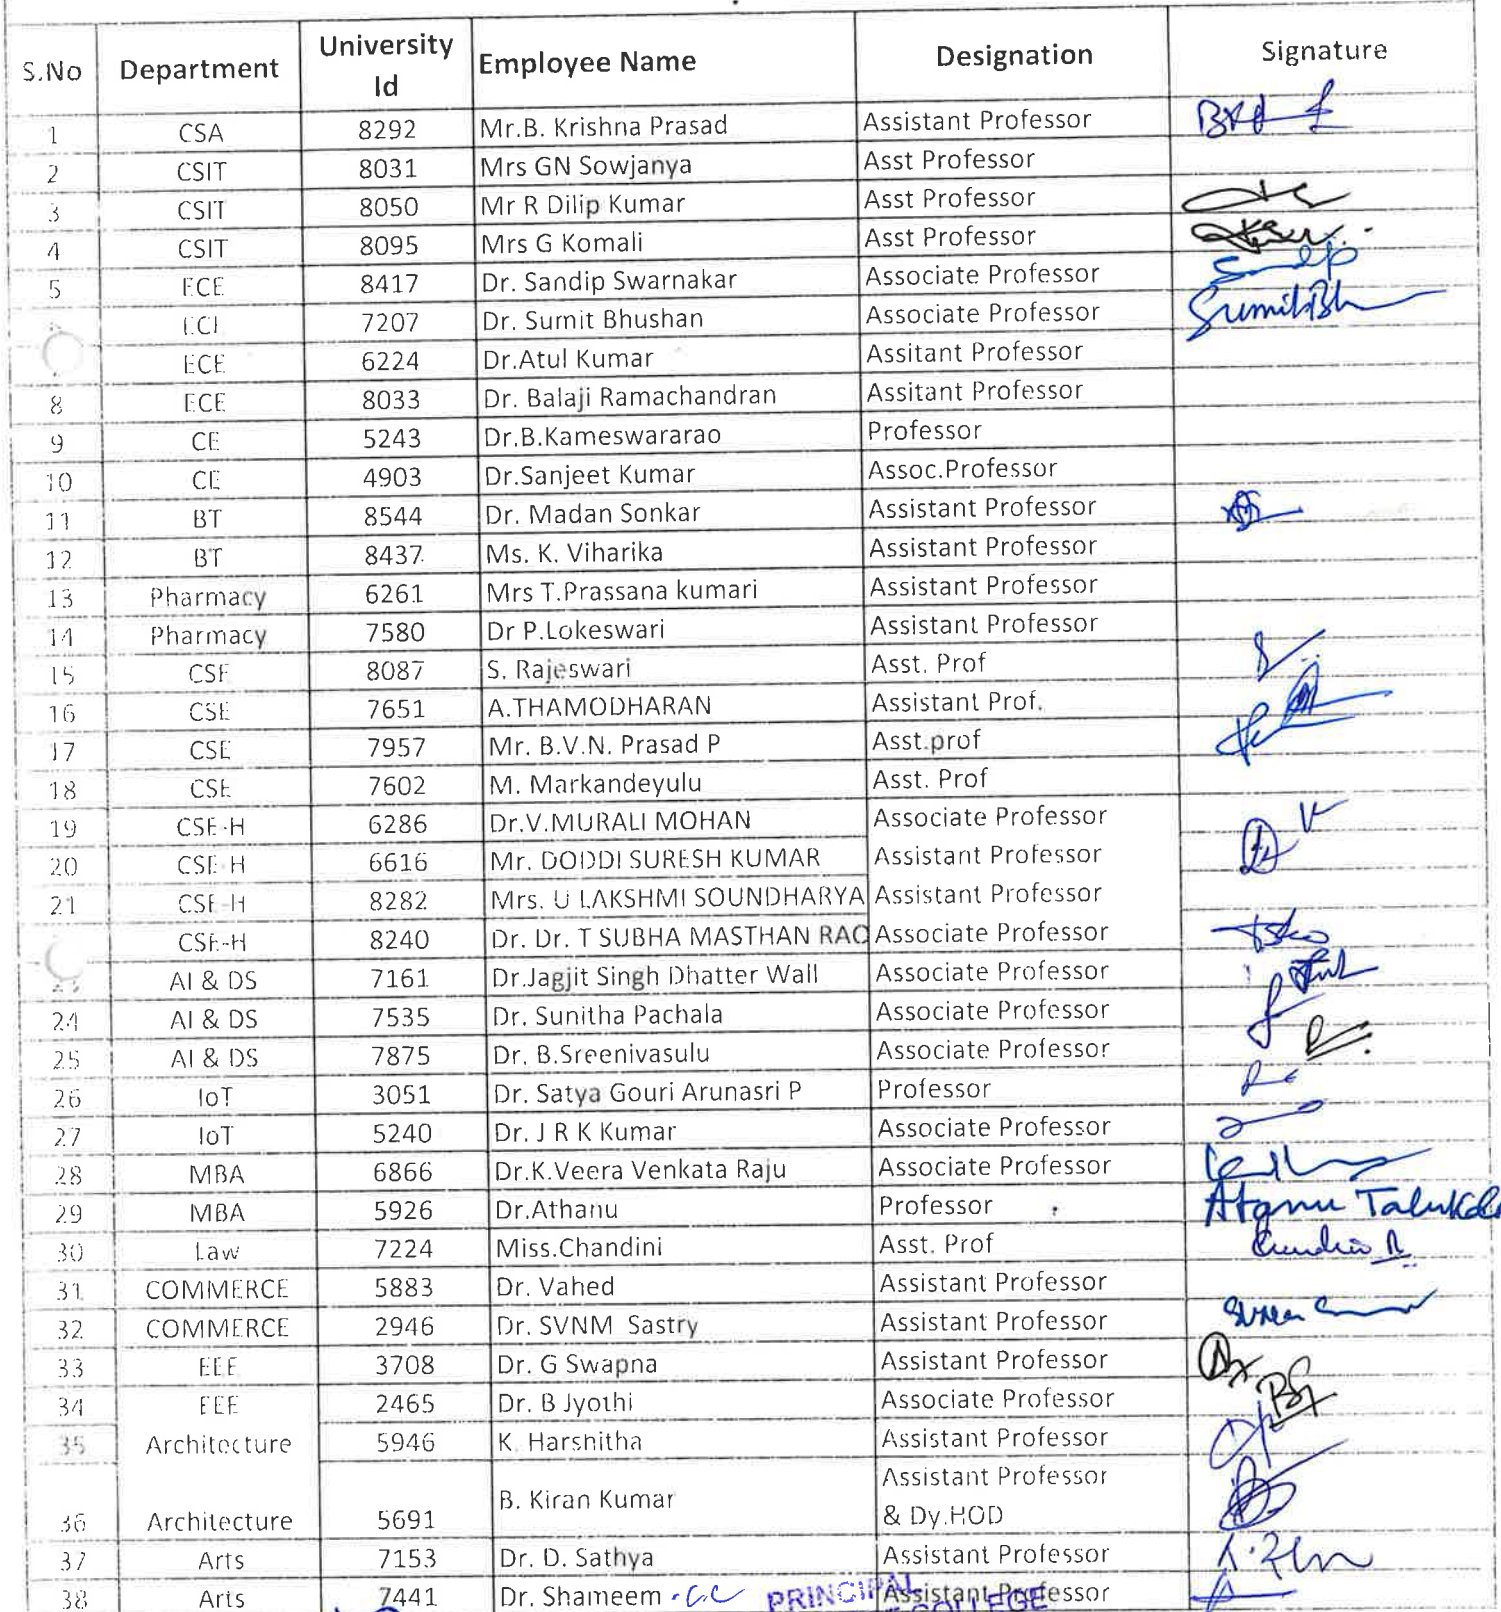 S.No Department University Id Employee Name Designation Signature
1 CSA 8292 Mr.B. Krishna Prasad Assistant Professor
2 CSIT 8031 Mrs GN Sowjanya Asst Professor
3 CSIT 8050 Mr R Dilip Kumar Asst Professor
4 CSIT 8095 Mrs G Komali Asst Professor
5 ECE 8417 Dr. Sandip Swarnakar Associate Professor
ECE 7207 Dr. Sumit Bhushan Associate Professor SumitBh
ECE 6224 Dr.Atul Kumar Assitant Professor
8 ECE 8033 Dr. Balaji Ramachandran Assitant Professor
9 CE 5243 Dr.B.Kameswararao Professor
10 CE 4903 Dr.Sanjeet Kumar Assoc.Professor
11 BT 8544 Dr. Madan Sonkar Assistant Professor
12 BT 8437 Ms. K. Viharika Assistant Professor
13 Pharmacy 6261 Mrs T.Prassana kumari Assistant Professor
14 Pharmacy 7580 Dr P.Lokeswari Assistant Professor
15 CSE 8087 S. Rajeswari Asst. Prof
16 CSE 7651 A.THAMODHARAN Assistant Prof.
17 CSE 7957 Mr. B.V.N. Prasad P Asst.prof
18 CSE 7602 M. Markandeyulu Asst. Prof
19 CSE-H 6286 Dr.V.MURALI MOHAN Associate Professor
20 CSE-H 6616 Mr. DODDI SURESH KUMAR Assistant Professor
21 CSE-H 8282 Mrs. U LAKSHMI SOUNDHARYA Assistant Professor
CSE-H 8240 Dr. Dr. T SUBHA MASTHAN RAO Associate Professor
23 AI & DS 7161 Dr.Jagjit Singh Dhatter Wall Associate Professor
24 AI & DS 7535 Dr. Sunitha Pachala Associate Professor
25 AI & DS 7875 Dr. B.Sreenivasulu Associate Professor
26 IoT 3051 Dr. Satya Gouri Arunasri P Professor
27 IoT 5240 Dr. J R K Kumar Associate Professor
28 MBA 6866 Dr.K.Veera Venkata Raju Associate Professor
29 MBA 5926 Dr.Athanu Professor Atanu
30 Law 7224 Miss.Chandini Asst. Prof
31 COMMERCE 5883 Dr. Vahed Assistant Professor
32 COMMERCE 2946 Dr. SVNM Sastry Assistant Professor
33 EEE 3708 Dr. G Swapna Assistant Professor
34 EEE 2465 Dr. B Jyothi Associate Professor
35 Architecture 5946 K. Harshitha Assistant Professor
36 Architecture 5691 B. Kiran Kumar Assistant Professor
& Dy.HOD
37 Arts 7153 Dr. D. Sathya Assistant Professor
38 Arts 7441 Dr. Shameem Assistant Professor
PRINCIPAL
COLLEGE